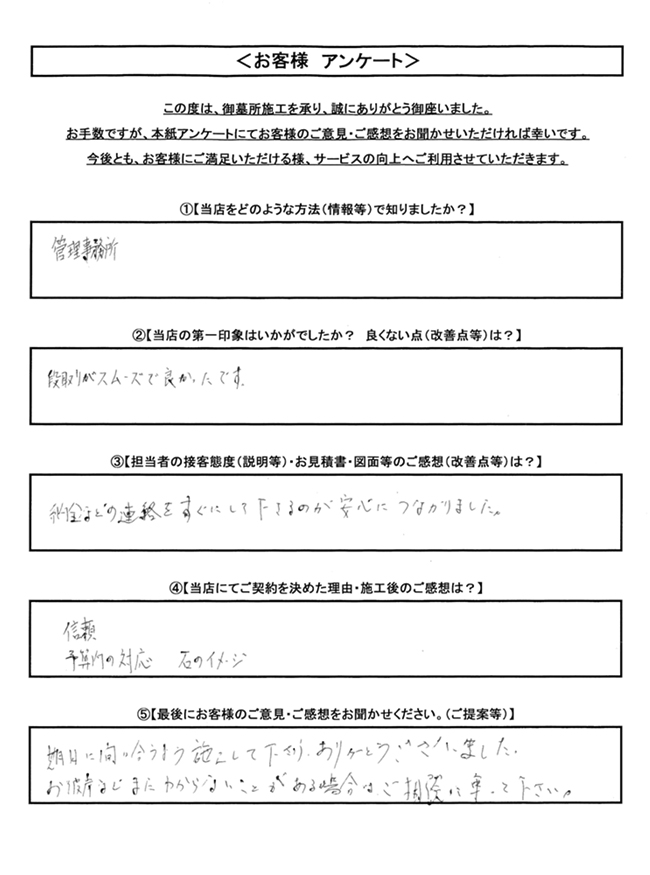 ＜お客様　アンケート＞
この度は、御墓所施工を承り、誠にありがとう御座いました。
お手数ですが、本紙アンケートにてお客様のご意見・ご感想をお聞かせいただければ幸いです。
今後とも、お客様にご満足いただける様、サービスの向上へご利用させていただきます。
①【当店をどのような方法（情報等）で知りましたか？】
管理事務所
②【当店の第一印象はいかがでしたか？　良くない点（改善点等）は？】
段取りがスムーズで良かったです。
③【担当者の接客態度（説明等）・お見積書・図面等のご感想（改善点等）は？】
などの連絡をすぐにして下さるのが安心につながりました。
④【当店にてご契約を決めた理由・施工後のご感想は？】
信頼
予算内の対応　石のイメージ
⑤【最後にお客様のご意見・ご感想をお聞かせください。（ご提案等）】
期日に間に合うよう施工して下さり、ありがとうございました。
お彼岸などまたわからないことがある場合はご相談に乗って下さい。